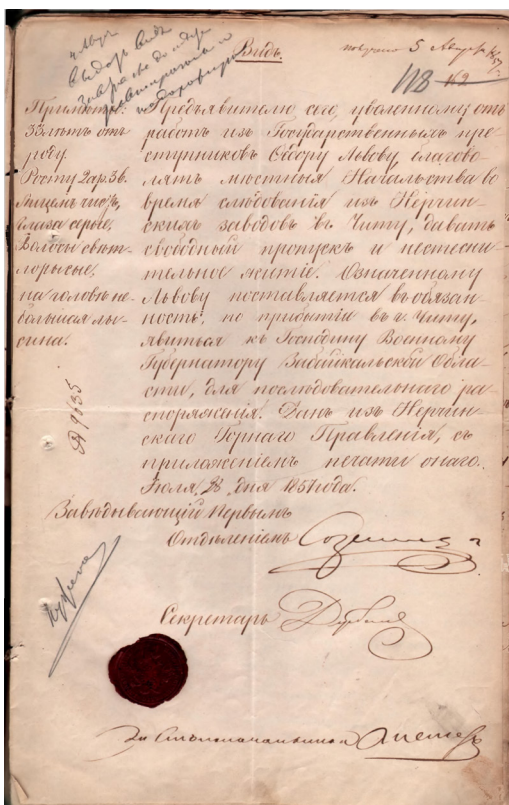 Видъ.
получено 5 Августа
118
112
Примѣты:
33 лѣтъ отъ
роду.
Росту 2 ар. 3 в.
Лицемъ чистъ,
глаза серые,
Волосы свѣт-
лорусые,
на головѣ не-
большая лы-
сина.
Предъявителю сего, уволенному отъ
работъ изъ Государственныхъ пре-
ступниковъ Ѳедору Львову, благово-
лятъ мѣстныя Начальства во
время слѣдования изъ Нерчин-
скихъ заводовъ въ Читу, давать
свободный пропускъ и нестесни-
тельное житіе. Означенному
Львову поставляется въ обязан-
ность, по прибытіи въ г. Читу,
явиться къ Господину Военному
Губернатору Забайкальской Обла-
сти, для послѣдовательнаго ра-
споряжения. Данъ изъ Нерчин-
скаго Горнаго Правленія, съ
приложеніемъ печати онаго.
Июля, 28 дня 1857 года.
№ 9635
Завѣдывающій Первымъ
Отдѣленіемъ
Секретарь
За Столоначальника